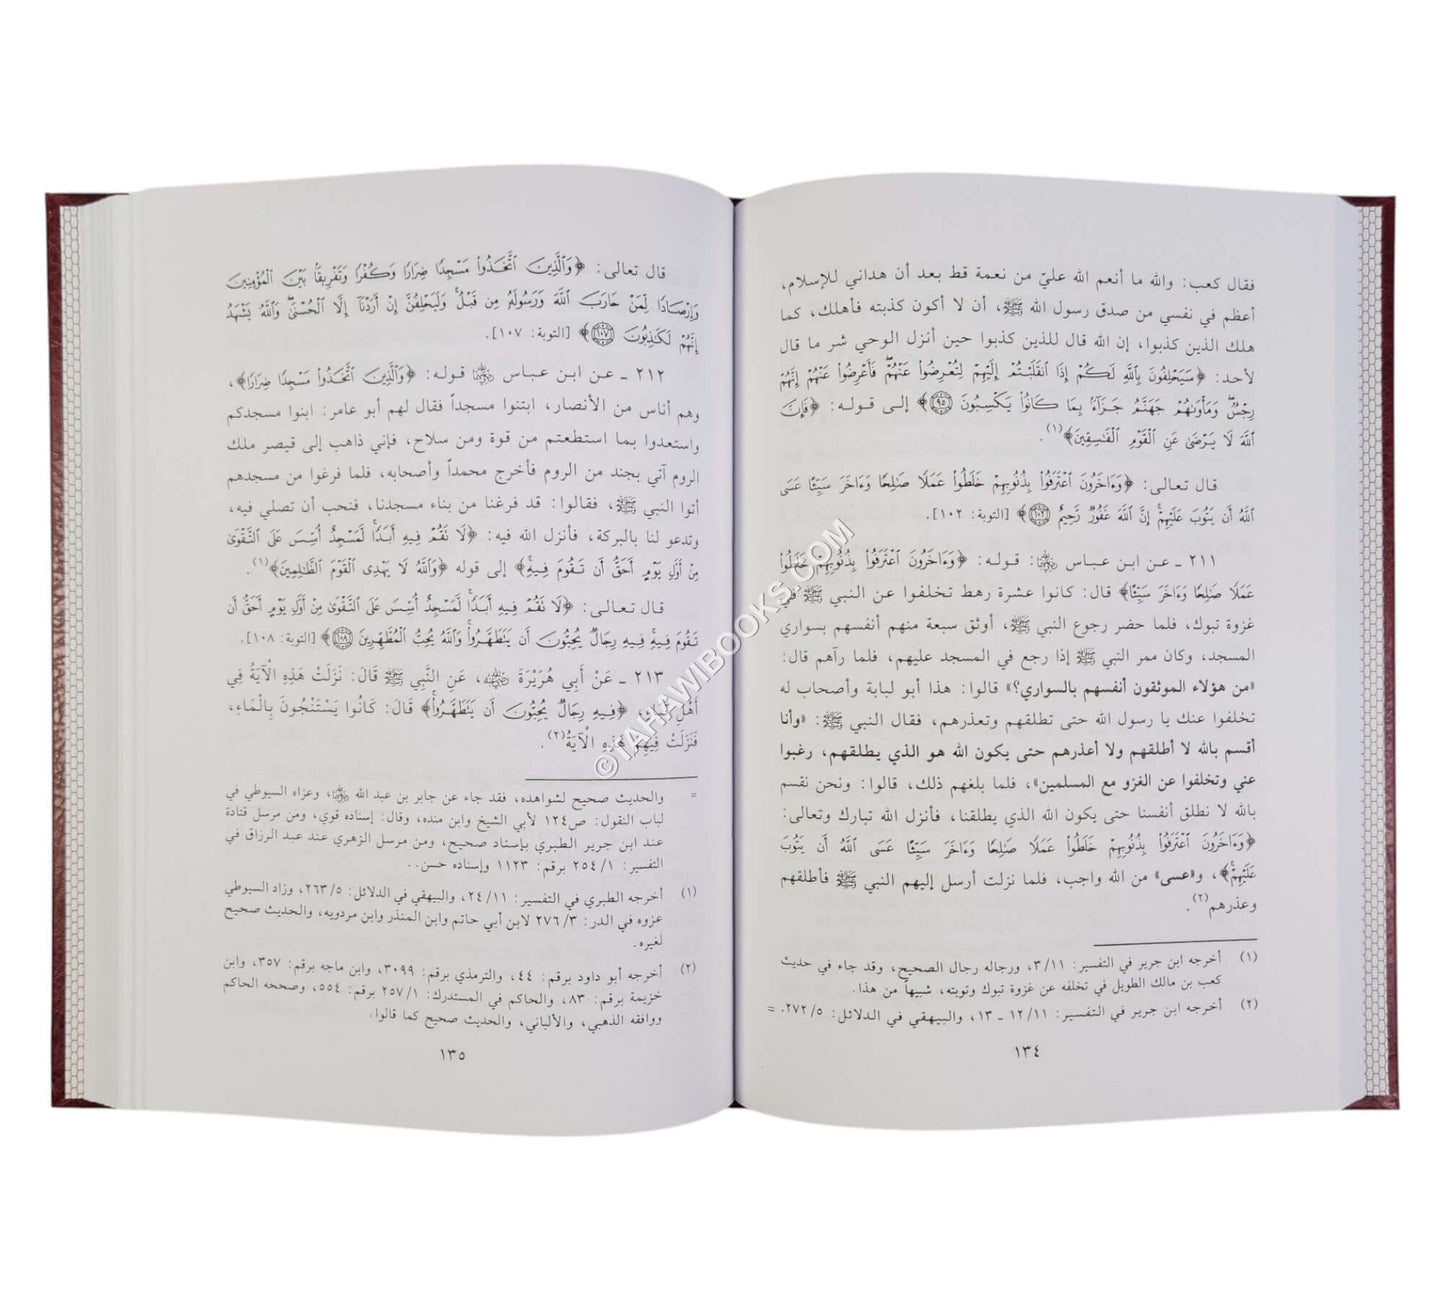 فقال كعب: والله ما أنعم الله عليّ من نعمة قط بعد أن هداني للإسلام،
أعظم في نفسي من صدق رسول الله ﷺ، أن لا أكون كذبته فأهلك، كما
هلك الذين كذبوا، إن الله قال للذين كذبوا حين أنزل الوحي شر ما قال
لأحد: ﴿سَيَحْلِفُونَ بِاللَّهِ لَكُمْ إِذَا انقَلَبْتُمْ إِلَيْهِمْ لِتُعْرِضُوا عَنْهُمْ فَأَعْرِضُوا عَنْهُمْ إِنَّهُمْ
رِجْسٌ وَمَأْوَاهُمْ جَهَنَّمُ جَزَاءً بِمَا كَانُوا يَكْسِبُونَ ٩٥﴾ إلى قوله: ﴿فَإِنَّ
اللَّهَ لَا يَرْضَىٰ عَنِ الْقَوْمِ الْفَاسِقِينَ﴾(١).
قال تعالى: ﴿وَءَاخَرُونَ اعْتَرَفُوا بِذُنُوبِهِمْ خَلَطُوا عَمَلًا صَالِحًا وَءَاخَرَ سَيِّئًا عَسَى
اللَّهُ أَن يَتُوبَ عَلَيْهِمْ إِنَّ اللَّهَ غَفُورٌ رَّحِيمٌ ١٠٢﴾ [التوبة: ١٠٢].
٢١١ ـ عن ابن عباس رضي الله عنهما: قوله: ﴿وَءَاخَرُونَ اعْتَرَفُوا بِذُنُوبِهِمْ خَلَطُوا
عَمَلًا صَالِحًا وَءَاخَرَ سَيِّئًا﴾ قال: كانوا عشرة رهط تخلفوا عن النبي ﷺ في
غزوة تبوك، فلما حضر رجوع النبي ﷺ، أوثق سبعة منهم أنفسهم بسواري
المسجد، وكان ممر النبي ﷺ إذا رجع في المسجد عليهم، فلما رآهم قال:
«من هؤلاء الموثقون أنفسهم بالسواري؟» قالوا: هذا أبو لبابة وأصحاب له
تخلفوا عنك يا رسول الله حتى تطلقهم وتعذرهم، فقال النبي ﷺ: «وأنا
أقسم بالله لا أطلقهم ولا أعذرهم حتى يكون الله هو الذي يطلقهم، رغبوا
عني وتخلفوا عن الغزو مع المسلمين»، فلما بلغهم ذلك، قالوا: ونحن نقسم
بالله لا نطلق أنفسنا حتى يكون الله الذي يطلقنا، فأنزل الله تبارك وتعالى:
﴿وَءَاخَرُونَ اعْتَرَفُوا بِذُنُوبِهِمْ خَلَطُوا عَمَلًا صَالِحًا وَءَاخَرَ سَيِّئًا عَسَى اللَّهُ أَن يَتُوبَ
عَلَيْهِمْ﴾، و«عسى» من الله واجب، فلما نزلت أرسل إليهم النبي ﷺ فأطلقهم
وعذرهم(٢).
(١) أخرجه ابن جرير في التفسير: ٣/١١، ورجاله رجال الصحيح، وقد جاء في حديث
كعب بن مالك الطويل في تخلفه عن غزوة تبوك وتوبته، شبيهاً من هذا.
(٢) أخرجه ابن جرير في التفسير: ١٢/١١ ـ ١٣، والبيهقي في الدلائل: ٢٧٢/٥. =
١٣٤
قال تعالى: ﴿وَالَّذِينَ اتَّخَذُوا مَسْجِدًا ضِرَارًا وَكُفْرًا وَتَفْرِيقًا بَيْنَ الْمُؤْمِنِينَ
وَإِرْصَادًا لِّمَنْ حَارَبَ اللَّهَ وَرَسُولَهُ مِن قَبْلُ وَلَيَحْلِفُنَّ إِنْ أَرَدْنَا إِلَّا الْحُسْنَىٰ وَاللَّهُ يَشْهَدُ
إِنَّهُمْ لَكَاذِبُونَ ١٠٧﴾ [التوبة: ١٠٧].
٢١٢ ـ عن ابن عباس رضي الله عنهما قوله: ﴿وَالَّذِينَ اتَّخَذُوا مَسْجِدًا ضِرَارًا﴾،
وهم أناس من الأنصار، ابتنوا مسجداً فقال لهم أبو عامر: ابنوا مسجدكم
واستعدوا بما استطعتم من قوة ومن سلاح، فإني ذاهب إلى قيصر ملك
الروم آتي بجند من الروم فأخرج محمداً وأصحابه، فلما فرغوا من مسجدهم
أتوا النبي ﷺ، فقالوا: قد فرغنا من بناء مسجدنا، فنحب أن تصلي فيه،
وتدعو لنا بالبركة، فأنزل الله فيه: ﴿لَا تَقُمْ فِيهِ أَبَدًا لَّمَسْجِدٌ أُسِّسَ عَلَى التَّقْوَىٰ
مِنْ أَوَّلِ يَوْمٍ أَحَقُّ أَن تَقُومَ فِيهِ﴾ إلى قوله ﴿وَاللَّهُ لَا يَهْدِي الْقَوْمَ الظَّالِمِينَ﴾(١).
قال تعالى: ﴿لَا تَقُمْ فِيهِ أَبَدًا لَّمَسْجِدٌ أُسِّسَ عَلَى التَّقْوَىٰ مِنْ أَوَّلِ يَوْمٍ أَحَقُّ أَن
تَقُومَ فِيهِ فِيهِ رِجَالٌ يُحِبُّونَ أَن يَتَطَهَّرُوا وَاللَّهُ يُحِبُّ الْمُطَّهِّرِينَ ١٠٨﴾ [التوبة: ١٠٨].
٢١٣ ـ عَنْ أَبِي هُرَيْرَةَ رضي الله عنه، عَنِ النَّبِي ﷺ قَالَ: نَزَلَتْ هَذِهِ الْآيَةُ فِي
أَهْلِ قُبَاءٍ، ﴿فِيهِ رِجَالٌ يُحِبُّونَ أَن يَتَطَهَّرُوا﴾ قَالَ: كَانُوا يَسْتَنْجُونَ بِالْمَاءِ،
فَنَزَلَتْ فِيهِمْ هَذِهِ الْآيَةُ(٢).
= والحديث صحيح لشواهده، فقد جاء عن جابر بن عبد الله رضي الله عنهما، وعزاه السيوطي في
لباب النقول: ص١٢٤ لأبي الشيخ وابن منده، وقال: إسناده قوي، ومن مرسل قتادة
عند ابن جرير الطبري بإسناد صحيح، ومن مرسل الزهري عند عبد الرزاق في
التفسير: ٢٥٤/١ برقم: ١١٢٣ وإسناده حسن.
(١) أخرجه الطبري في التفسير: ٢٤/١١، والبيهقي في الدلائل: ٢٦٣/٥، وزاد السيوطي
عزوه في الدر: ٢٧٦/٣ لابن أبي حاتم وابن المنذر وابن مردويه، والحديث صحيح
لغيره.
(٢) أخرجه أبو داود برقم: ٤٤، والترمذي برقم: ٣٠٩٩، وابن ماجه برقم: ٣٥٧، وابن
خزيمة برقم: ٨٣، والحاكم في المستدرك: ٢٥٧/١ برقم: ٥٥٤، وصححه الحاكم
ووافقه الذهبي، والألباني، والحديث صحيح كما قالوا.
١٣٥
©TAHAWIBOOKS.COM